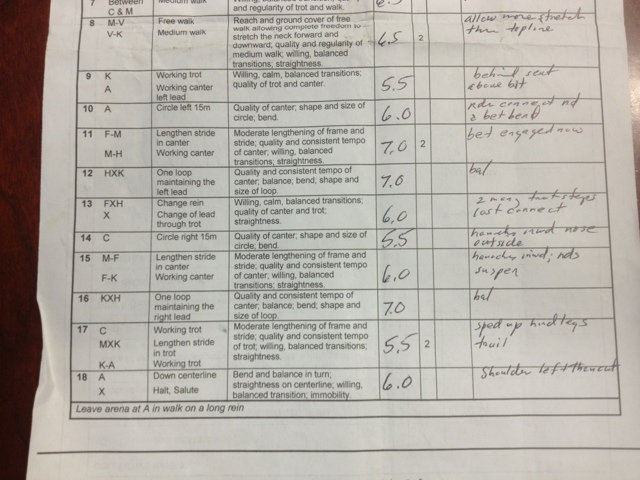 7 Between Medium walk
C & M and regularity of trot and walk.
8 M-V Free walk Reach and ground cover of free
walk allowing complete freedom to
V-K Medium walk stretch the neck forward and
downward; quality and regularity of
medium walk; willing, balanced
transitions; straightness.
6.5 2
allow more stretch
thru topline
9 K Working trot Willing, calm, balanced transitions;
quality of trot and canter.
A Working canter
left lead
5.5
behind seat
above bit
10 A Circle left 15m Quality of canter; shape and size of
circle; bend.
6.0
2 bet bend
11 F-M Lengthen stride Moderate lengthening of frame and
in canter stride; quality and consistent tempo
M-H Working canter of canter; willing, balanced
transitions; straightness.
7.0 2
bet engaged now
12 HXK One loop Quality and consistent tempo of
maintaining the canter; balance; bend; shape and
left lead size of loop.
7.0
bal
13 FXH Change rein Willing, calm, balanced transitions;
X Change of lead quality of canter and trot;
through trot straightness.
6.0
2 many trot steps
lost connect
14 C Circle right 15m Quality of canter; shape and size of
circle; bend.
5.5
nose
outside
15 M-F Lengthen stride Moderate lengthening of frame and
in canter stride; quality and consistent tempo
F-K Working canter of canter; willing, balanced
transitions; straightness.
6.0
suspen
16 KXH One loop Quality and consistent tempo of
maintaining the canter; balance; bend; shape and
right lead size of loop.
7.0
bal
17 C Working trot Moderate lengthening of frame and
MXK Lengthen stride stride; quality and consistent tempo
in trot of trot; willing, balanced transitions;
K-A Working trot straightness.
5.5 2
sped up hind legs
trail
18 A Down centerline Bend and balance in turn;
straightness on centerline; willing,
X Halt, Salute balanced transition; immobility.
6.0
Shoulder left thruout
Leave arena at A in walk on a long rein